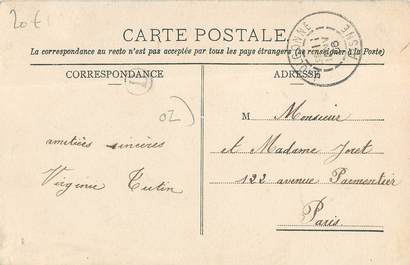 20 €
CARTE POSTALE
La correspondance au recto n'est pas acceptée par tous les pays étrangers (se renseigner à la Poste)
CORRESPONDANCE
ADRESSE
AISNE
02
M Monsieur
et Madame Joret
122 avenue Parmentier
Paris.
amitiés sincères
Virginie Tutin